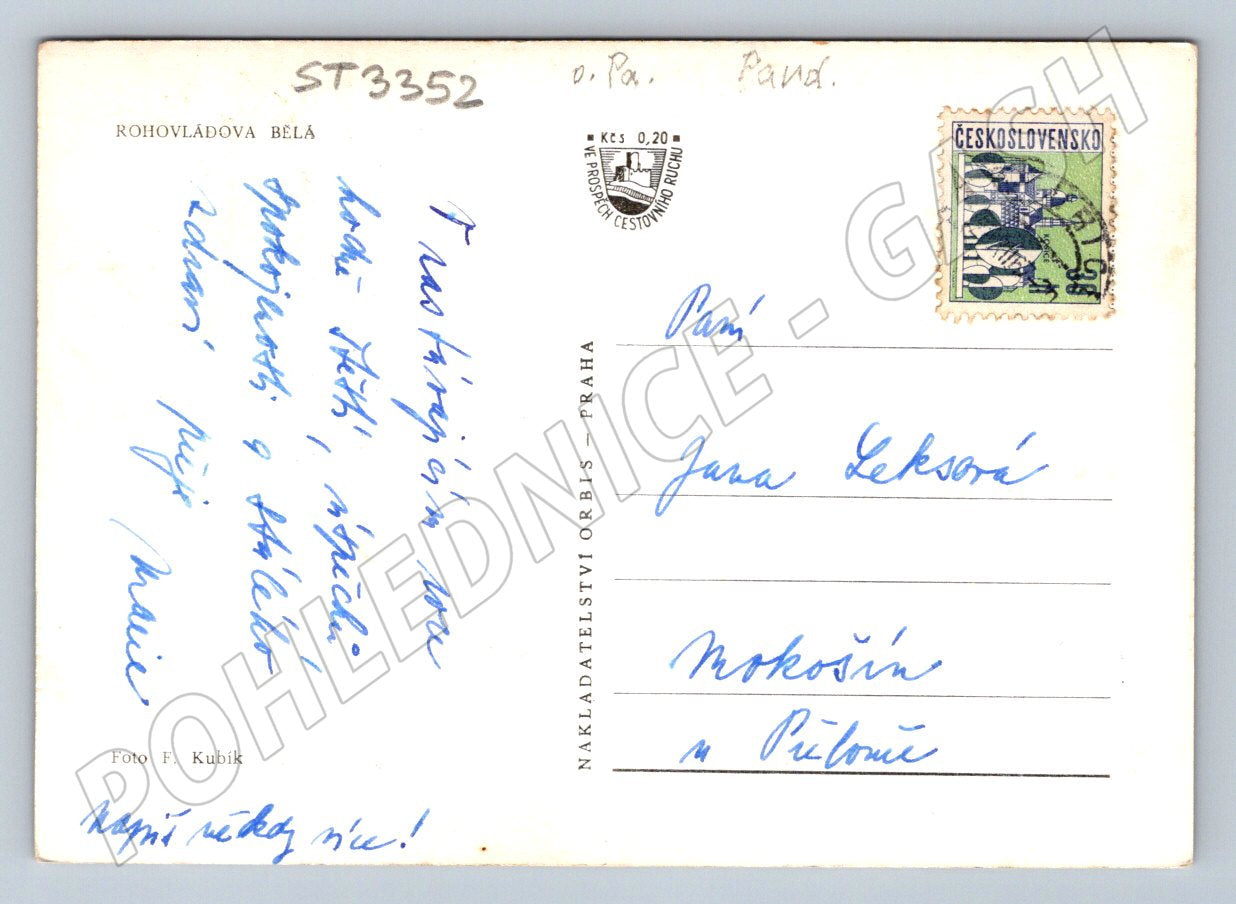 ST3352
o. Pa.
Pard.
ROHOVLÁDOVA BĚLÁ
Kčs 0,20
VE PROSPĚCH CESTOVNÍHO RUCHU
ČESKOSLOVENSKO
V nastávajícím roce
hodně štěstí, úspěchů
spokojenosti a stálého
zdraví přeje
Marie
NAKLADATELSTVÍ ORBIS – PRAHA
Paní
Jana Leksová
Mokošín
u Přelouče
Foto F. Kubík
Napiš někdy více!
POHLEDNICE - GASH